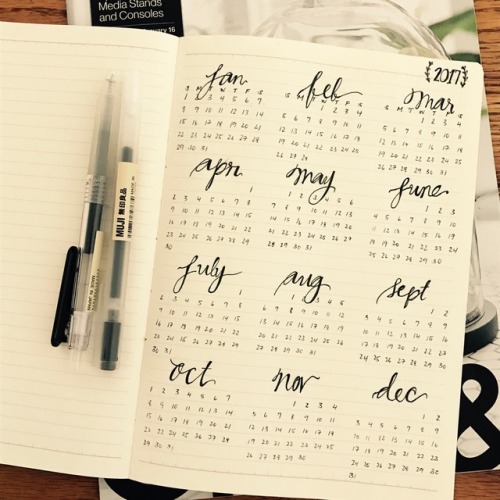 Media Stands
and Consoles
MUJI 無印良品
2017
jan
S M T W T F S
1 2 3 4 5 6 7
8 9 10 11 12 13 14
15 16 17 18 19 20 21
22 23 24 25 26 27 28
29 30 31
feb
S M T W T F S
1 2 3 4
5 6 7 8 9 10 11
12 13 14 15 16 17 18
19 20 21 22 23 24 25
26 27 28
mar
S M T W T F S
1 2 3 4
5 6 7 8 9 10 11
12 13 14 15 16 17 18
19 20 21 22 23 24 25
26 27 28 29 30 31
apr
1
2 3 4 5 6 7 8
9 10 11 12 13 14 15
16 17 18 19 20 21 22
23 24 25 26 27 28 29
30
may
1 2 3 4 5 6
7 8 9 10 11 12 13
14 15 16 17 18 19 20
21 22 23 24 25 26 27
28 29 30 31
june
1 2 3
4 5 6 7 8 9 10
11 12 13 14 15 16 17
18 19 20 21 22 23 24
25 26 27 28 29 30
july
1
2 3 4 5 6 7 8
9 10 11 12 13 14 15
16 17 18 19 20 21 22
23 24 25 26 27 28 29
30 31
aug
1 2 3 4 5
6 7 8 9 10 11 12
13 14 15 16 17 18 19
20 21 22 23 24 25 26
27 28 29 30 31
sept
1 2
3 4 5 6 7 8 9
10 11 12 13 14 15 16
17 18 19 20 21 22 23
24 25 26 27 28 29 30
oct
1 2 3 4 5 6 7
8 9 10 11 12 13 14
15 16 17 18 19 20 21
22 23 24 25 26 27 28
29 30 31
nov
1 2 3 4
5 6 7 8 9 10 11
12 13 14 15 16 17 18
19 20 21 22 23 24 25
26 27 28 29 30
dec
1 2
3 4 5 6 7 8 9
10 11 12 13 14 15 16
17 18 19 20 21 22 23
24 25 26 27 28 29 30
31
&